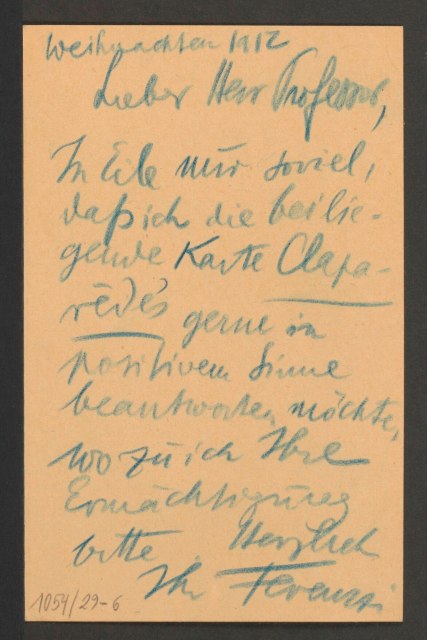 Weihnachten 1912
Lieber Herr Professor,
In Eile nur soviel,
daß ich die beilie-
gende Karte Clapa-
rède's gerne im
positivem Sinne
beantworten möchte,
wozu ich Ihre
Ermächtigung
bitte. Herzlich
Ihr Ferenczi
1054/29-6